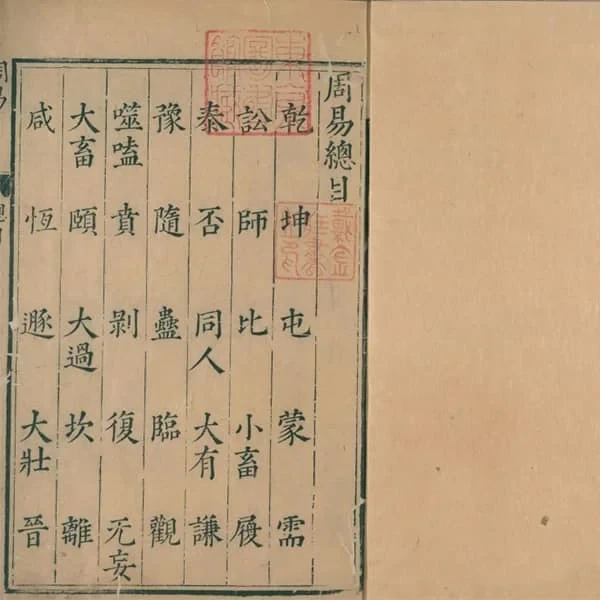 周易總目
乾 坤 屯 蒙 需
訟 師 比 小畜 履
泰 否 同人 大有 謙
豫 隨 蠱 臨 觀
噬嗑 賁 剝 復 无妄
大畜 頤 大過 坎 離
咸 恆 遯 大壯 晉